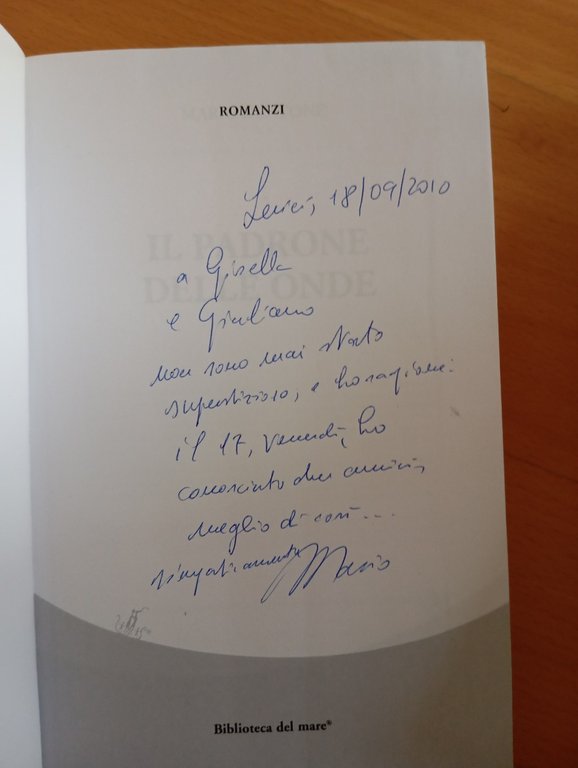 ROMANZI
Lerici, 18/09/2010
IL PADRONE
DELLE ONDE
a Gisella
e Giuliano
non sono mai stato
superstizioso, e ho ragione:
il 17, venerdì, ho
conosciuto due amici,
meglio di così...
simpaticamente Mario
Biblioteca del mare®